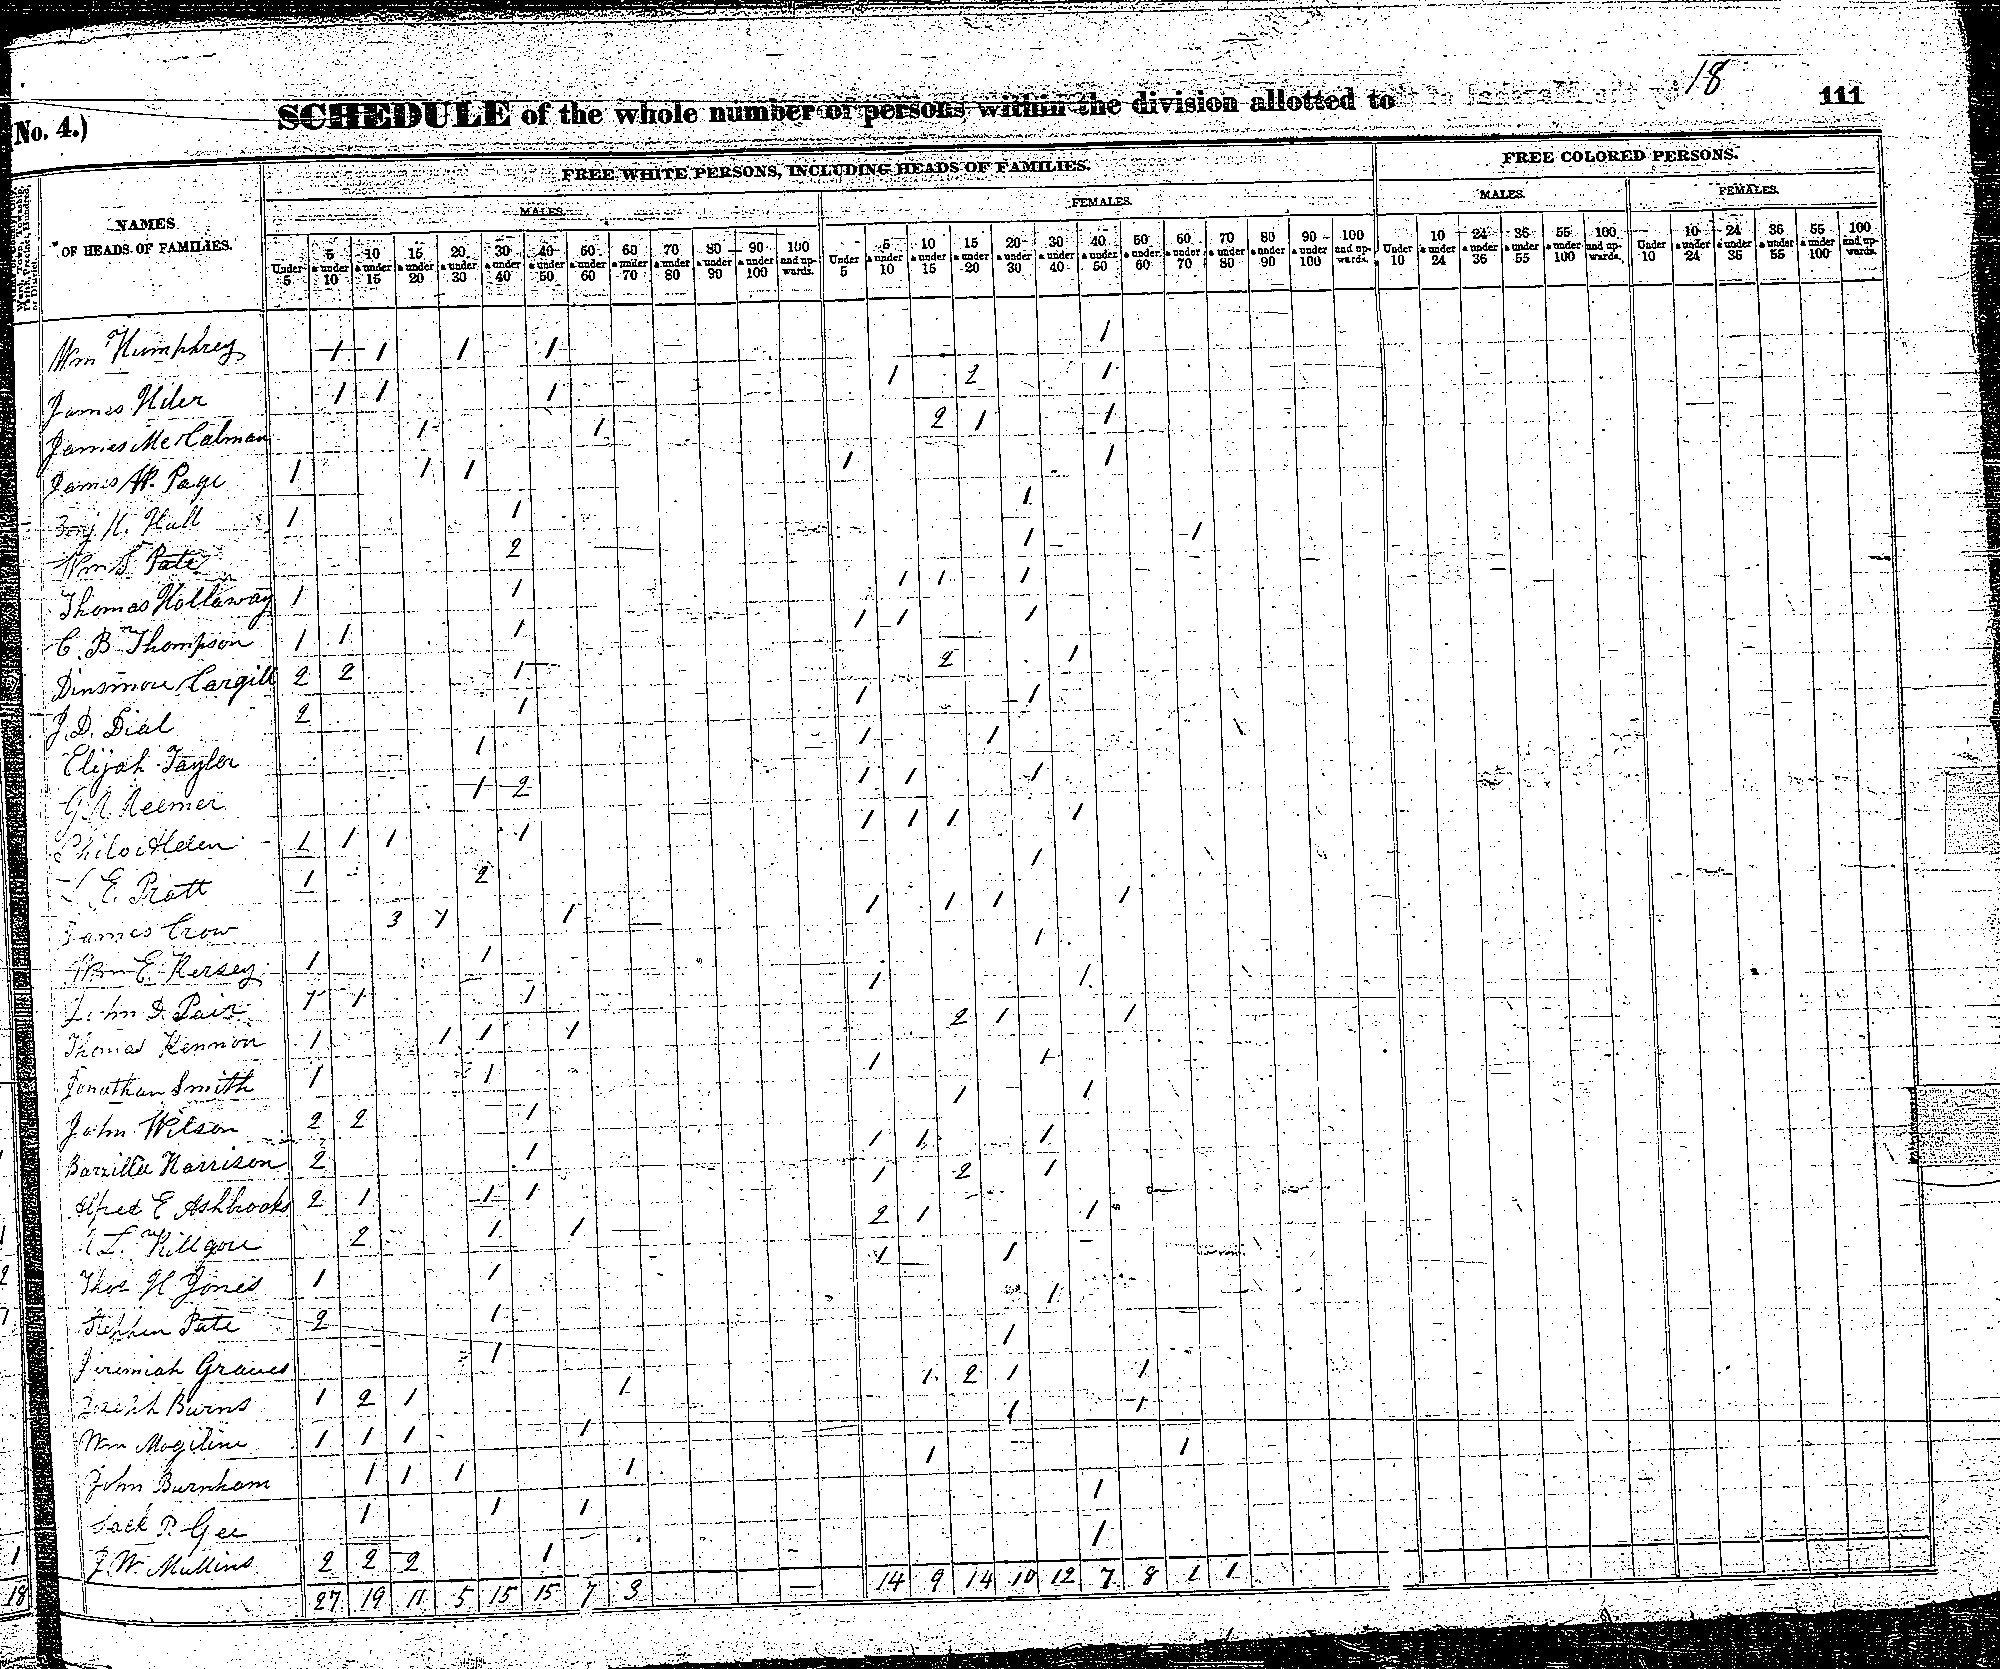 18
111
No. 4.)
SCHEDULE of the whole number of persons within the division allotted to
FREE WHITE PERSONS, INCLUDING HEADS OF FAMILIES.
FREE COLORED PERSONS.
NAMES OF HEADS OF FAMILIES.
MALES. FEMALES. MALES. FEMALES.
Under 5 5 & under 10 10 & under 15 15 & under 20 20 & under 30 30 & under 40 40 & under 50 50 & under 60 60 & under 70 70 & under 80 80 & under 90 90 & under 100 100 and upwards. Under 5 5 & under 10 10 & under 15 15 & under 20 20 & under 30 30 & under 40 40 & under 50 50 & under 60 60 & under 70 70 & under 80 80 & under 90 90 & under 100 100 and upwards. Under 10 10 & under 24 24 & under 36 36 & under 55 55 & under 100 100 and upwards. Under 10 10 & under 24 24 & under 36 36 & under 55 55 & under 100 100 and upwards.
Wm Humphrey 1 1 1 1 1
James 1 1 1 1 2 1
James McCalman 1 1 2 1 1
James W. Page 1 1 1 1 1
Benj H. Hall 1 1 1
Wm S. Pate 2 1 1
Thomas Hollaway 1 1 1 1 1
C. B. Thompson 1 1 1 1 1 1
Dinsmore Cargill 2 2 1 2 1
J. D. Dial 2 1 1 1
Elijah Taylor 1 1 1
G. R. Reemer 1 2 1 1 1
Philo Alden 1 1 1 1 1 1 1 1
E. Pratt 1 2 1
James Crow 3 1 1 1 1 1 1
Wm E. Kersey 1 1 1
John D. Pair 1 1 1 1 1
Thomas Kennon 1 1 1 1 2 1 1
Jonathan Smith 1 1 1 1
John Wilson 2 2 1 1 1
Barzilla Harrison 2 1 1 1 1
Alfred E Ashbrooks 2 1 1 1 1 2 1
L. Killgore 2 1 1 2 1 1
Thos H Jones 1 1 1 1
Stephen Pate 2 1 1
Jeremiah Graves 1 1
Joseph Burns 1 2 1 1 1 2 1 1
Wm 1 1 1 1 1 1
John Burnham 1 1 1 1 1 1
Jack P. Gee 1 1 1 1
J. W. Mullins 2 2 2 1 1
27 19 11 5 15 15 7 3 14 9 14 10 12 7 8 1 1